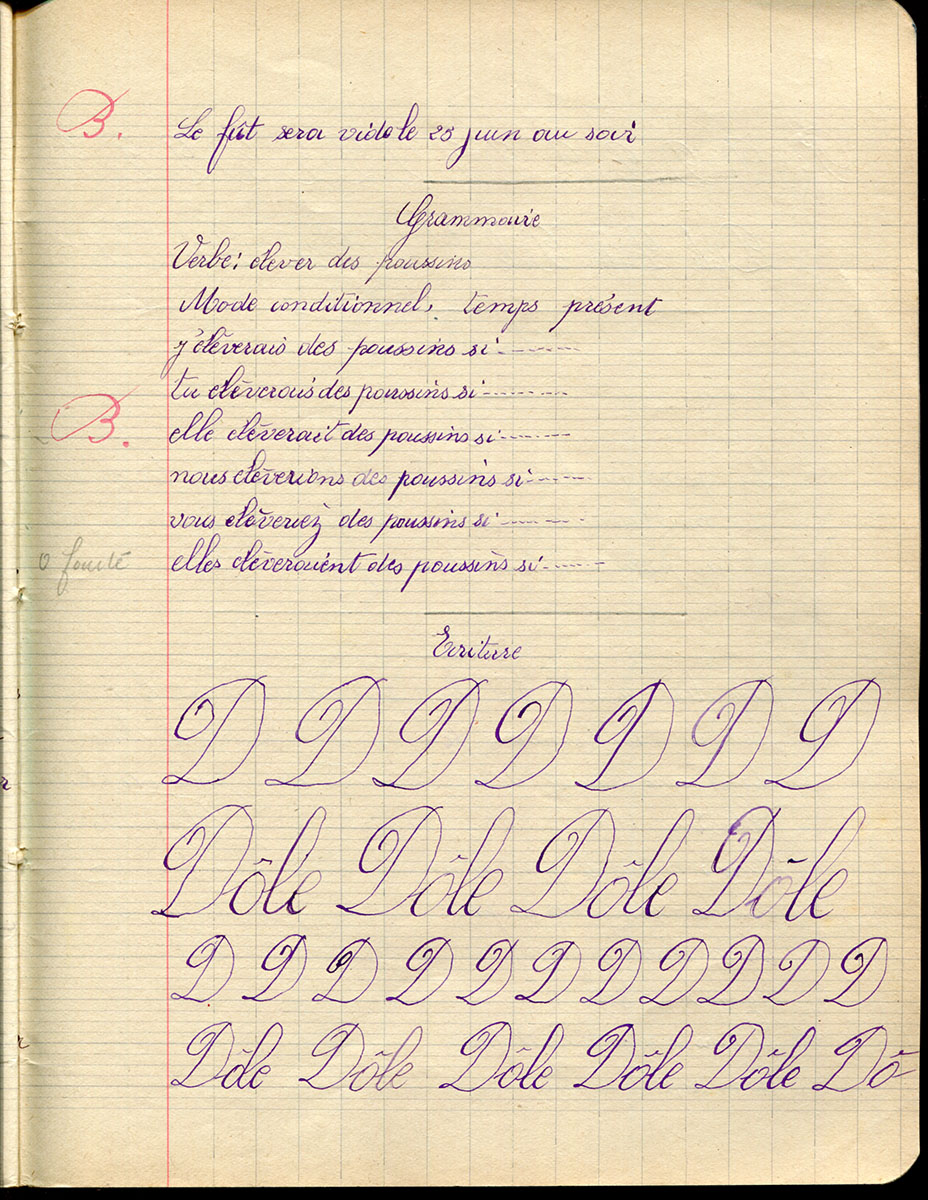 B.
Le fût sera vide le 23 juin au soir
Grammaire
Verbe: élever des poussins
Mode conditionnel, temps présent
j'élèverais des poussins si
tu élèverais des poussins si
B.
elle élèverait des poussins si
nous élèverions des poussins si
vous élèveriez des poussins si
elles élèveraient des poussins si
Ecriture
D D D D D D D
Dôle Dôle Dôle Dôle
D D D D D D D D D D
Dôle Dôle Dôle Dôle Dôle Dô-